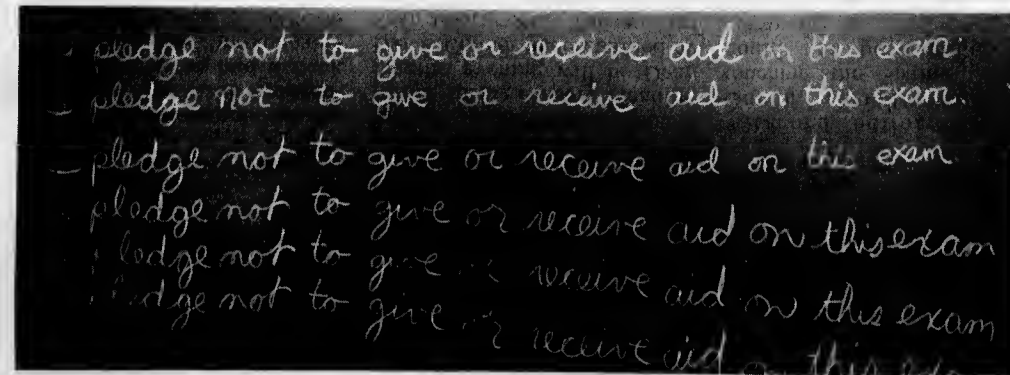 pledge not to give or receive aid on this exam.
pledge not to give or receive aid on this exam.
pledge not to give or receive aid on this exam
pledge not to give or receive aid on this exam
ledge not to give or receive aid on this exam
edge not to give or receive aid on this